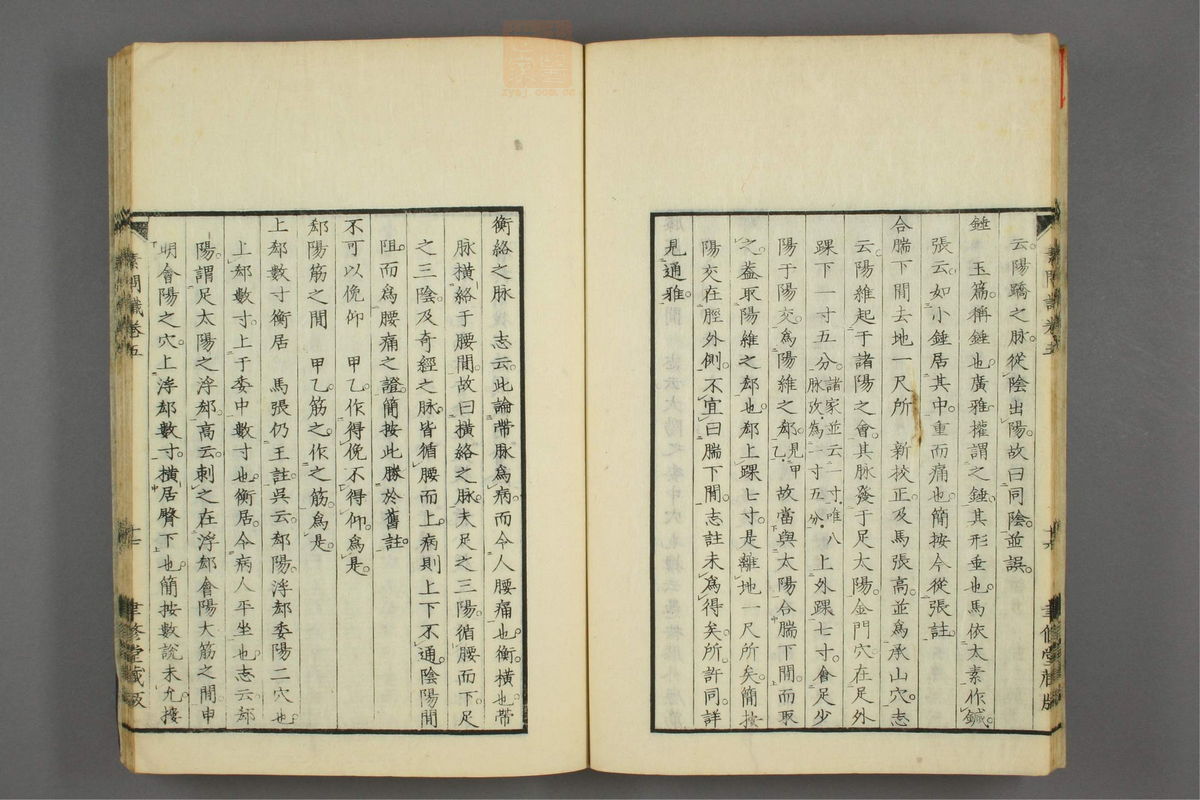 云陽蹻之脉從陰出陽故曰同陰並誤
錘　玉篇稱錘也廣雅權謂之錘其形垂也馬依太素作鍼
張云如小錘居其中重而痛也簡按今從張註
合腨下間去地一尺所　新校正及馬張高並為承山穴志
云陽維起于諸陽之會其脉發于足太陽金門穴在足外
踝下一寸五分諸家並云一寸唯八脉攷為一寸五分上外踝七寸會足少
陽于陽交為陽維之郄見甲乙故當與太陽合腨下間而取
之蓋取陽維之郄也郄上踝七寸是離地一尺所矣簡按
陽交在脛外側不宜曰腨下間志註未為得矣所許同詳
見通雅
素問識卷五
聿修堂藏版
衡絡之脉　志云此論帶脉為病而令人腰痛也衡橫也帶
脉橫絡于腰間故曰橫絡之脉夫足之三陽循腰而下足
之三陰及奇經之脉皆循腰而上病則上下不通陰陽間
阻而為腰痛之證簡按此勝於舊註
不可以俛仰　甲乙作得俛不得仰為是
郄陽筋之間　甲乙筋之作之筋為是
上郄數寸衡居　馬張仍王註吳云郄陽浮郄委陽二穴也
上郄數寸上于委中數寸也衡居令病人平坐也志云郄
陽謂足太陽之浮郄高云刺之在浮郄會陽大筋之間申
明會陽之穴上浮郄數寸橫居臀下也簡按數說未允接
素問識卷五
聿修堂藏版